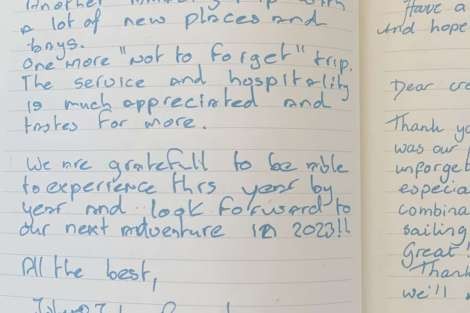 Another
a lot of new places and
bays.
One more "not to forget" trip.
The service and hospitality
is much appreciated and
tastes for more.
We are gratefull to be able
to experience this year by
year and look forward to
our next adventure in 2023!!
All the best,
Have a
And hope
Dear cre
Thank yo
was our
unforget
especia
combina
sailing
Great!
Thank
we'll